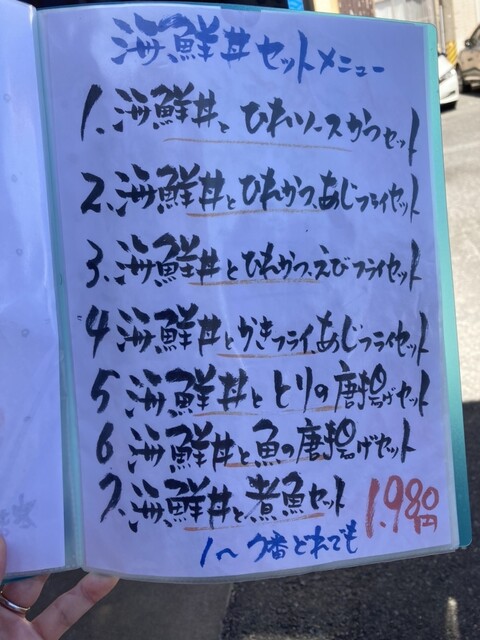 海鮮丼セットメニュー
1.海鮮丼とひれソースかつセット
2.海鮮丼とひれかつ、あじフライセット
3.海鮮丼とひれかつ、えびフライセット
4 海鮮丼とかきフライ、あじフライセット
5 海鮮丼ととりの唐揚げセット
6.海鮮丼と魚の唐揚げセット
7.海鮮丼と煮魚セット
1.980円
1〜7番どれでも